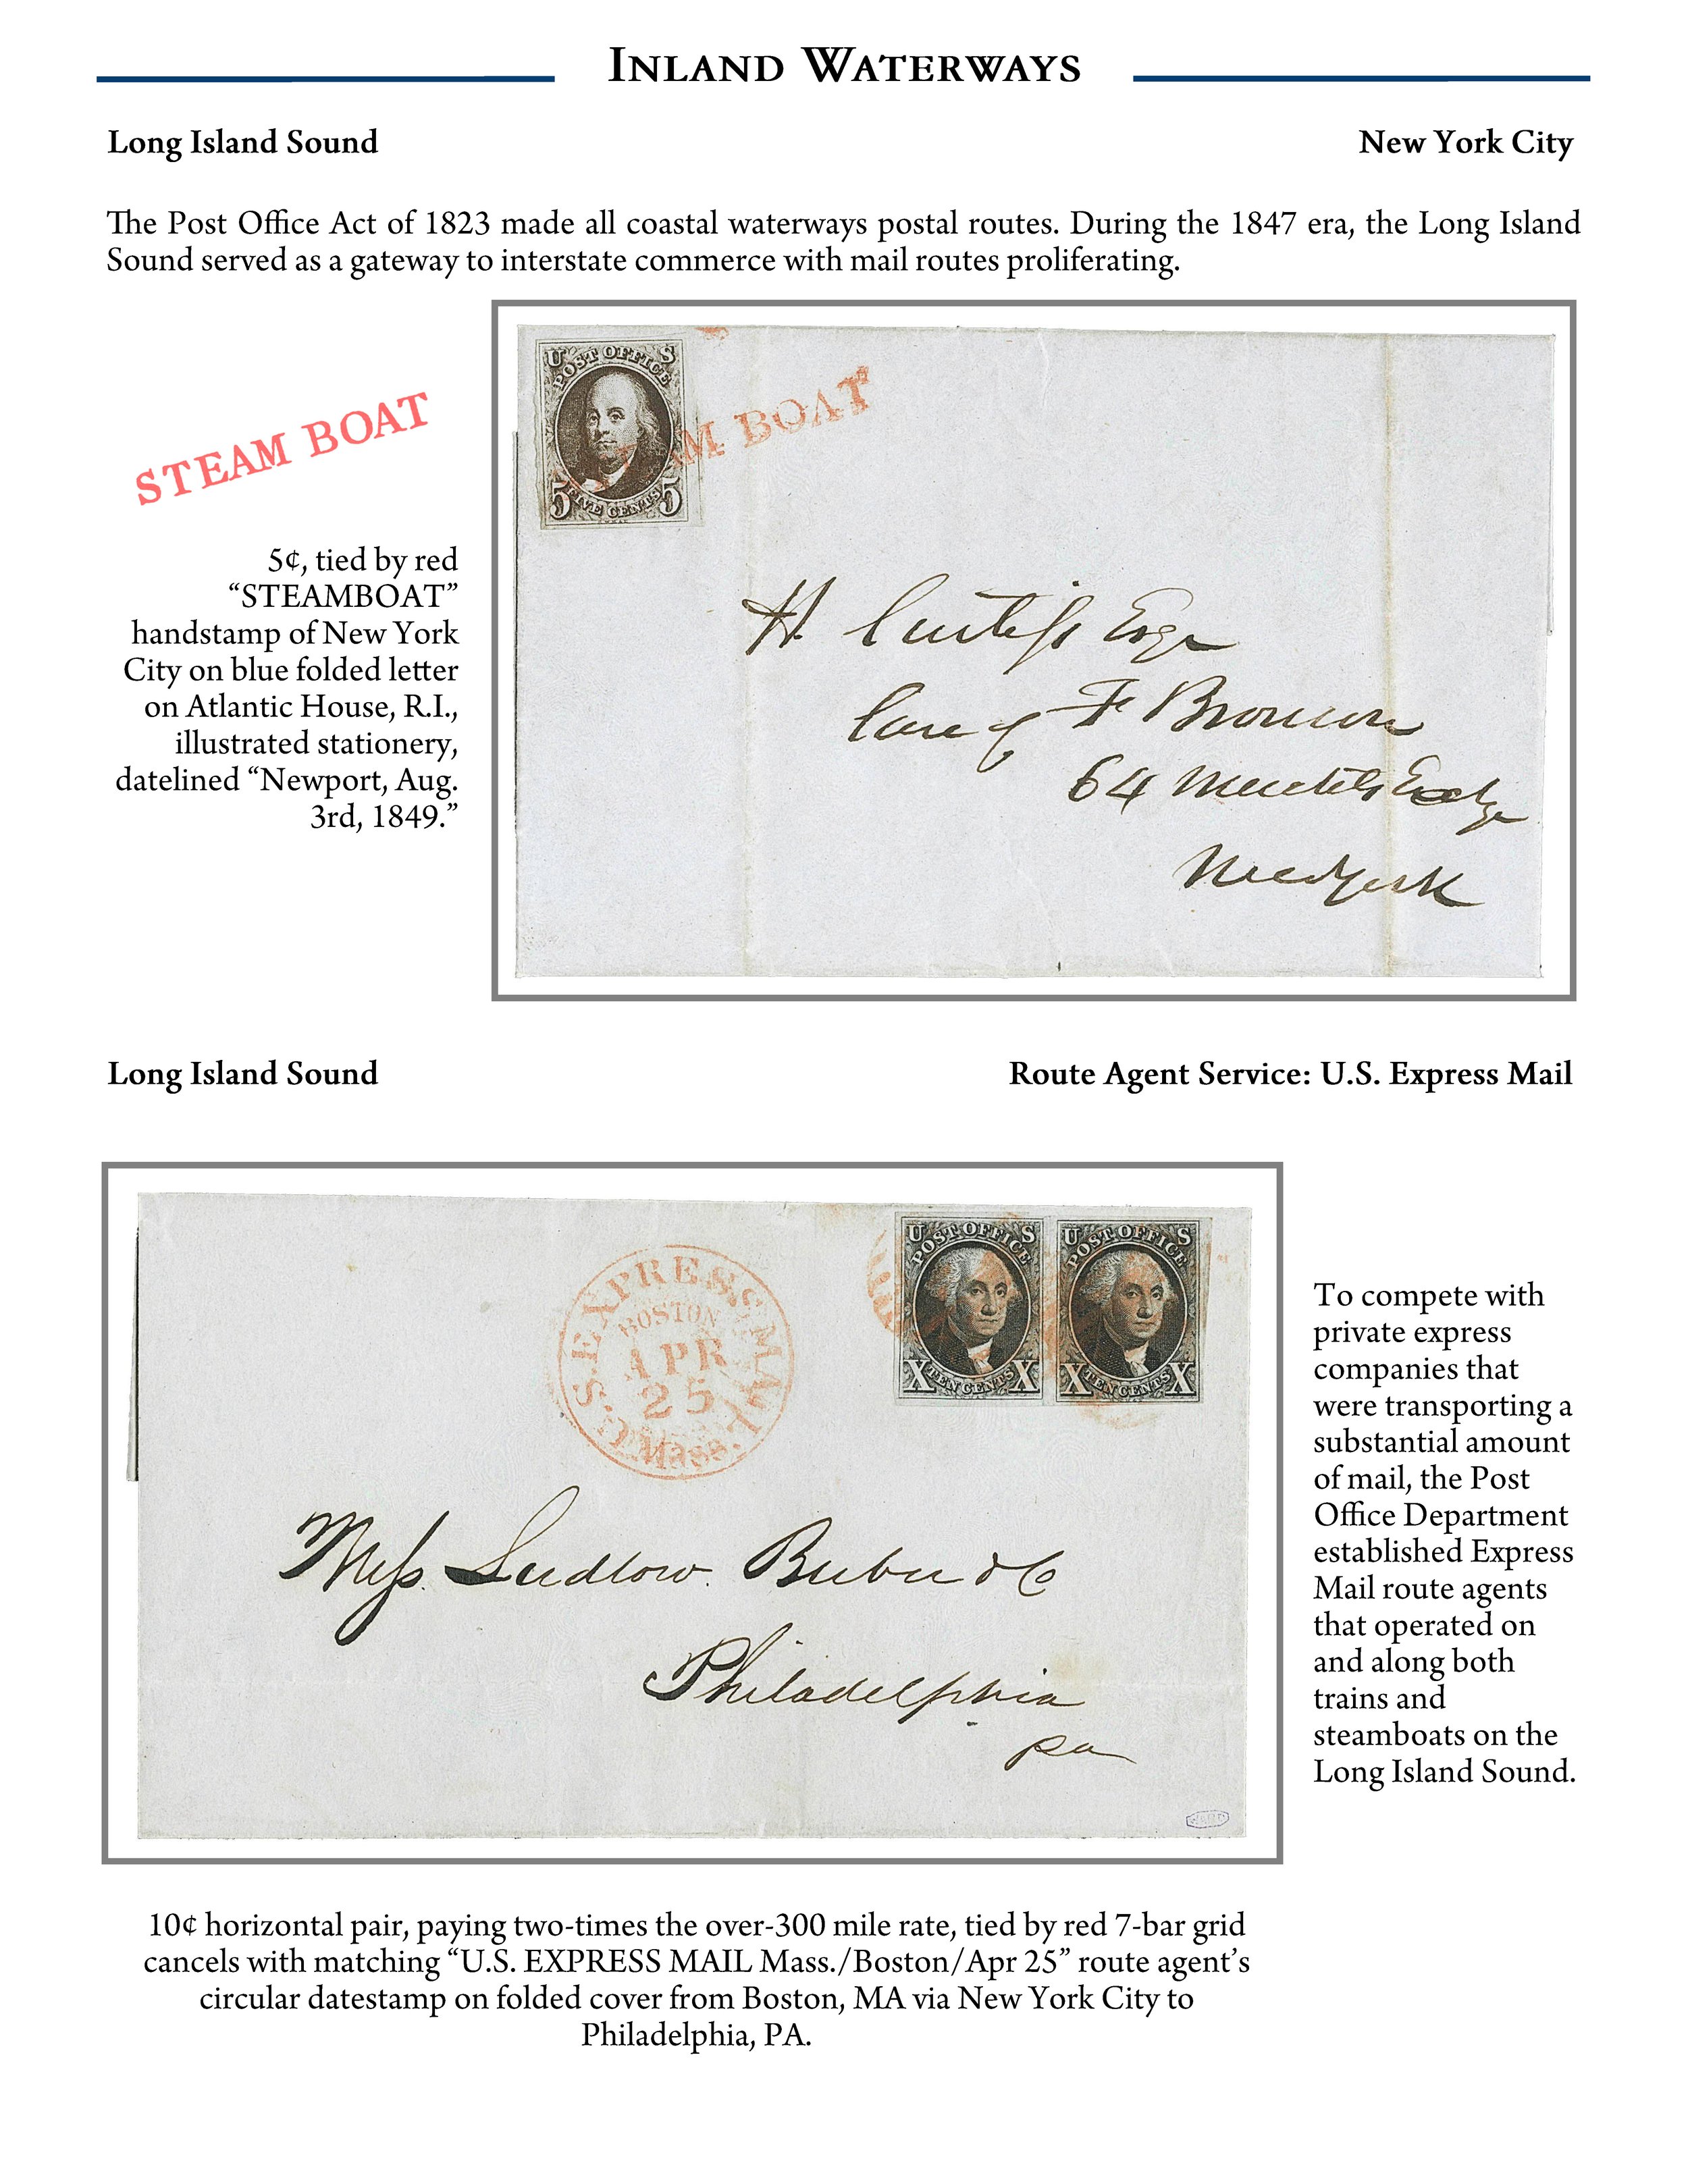 INLAND WATERWAYS
Long Island Sound
New York City
The Post Office Act of 1823 made all coastal waterways postal routes. During the 1847 era, the Long Island
Sound served as a gateway to interstate commerce with mail routes proliferating.
STEAM BOAT
5¢, tied by red
“STEAMBOAT”
handstamp of New York
City on blue folded letter
on Atlantic House, R.I.,
illustrated stationery,
datelined “Newport, Aug.
3rd, 1849.”
U S
POST OFFICE
5 FIVE CENTS 5
M BOAT
H. Curtiss Esqr
Care of F Bronson
64
New York
Long Island Sound
Route Agent Service: U.S. Express Mail
U.S. EXPRESS MAIL
BOSTON
APR
25
Mass.
U S
POST OFFICE
X TEN CENTS X
U S
POST OFFICE
X TEN CENTS X
Mess Ludlow Beebee & Co
Philadelphia
pa
To compete with
private express
companies that
were transporting a
substantial amount
of mail, the Post
Office Department
established Express
Mail route agents
that operated on
and along both
trains and
steamboats on the
Long Island Sound.
10¢ horizontal pair, paying two-times the over-300 mile rate, tied by red 7-bar grid
cancels with matching “U.S. EXPRESS MAIL Mass./Boston/Apr 25” route agent’s
circular datestamp on folded cover from Boston, MA via New York City to
Philadelphia, PA.